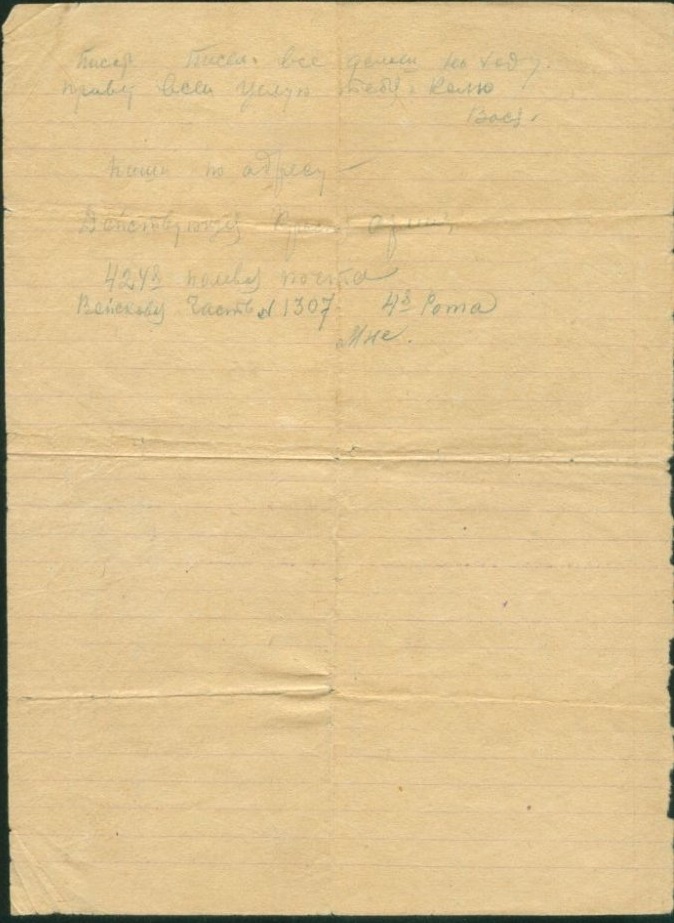 все делаем на ходу.
привет всем целую тебя и Колю
Вася.
пиши по адресу —
Действующая Красн армия
424я полевая почта
Войсковая Часть № 1307. 4я Рота
Мне.